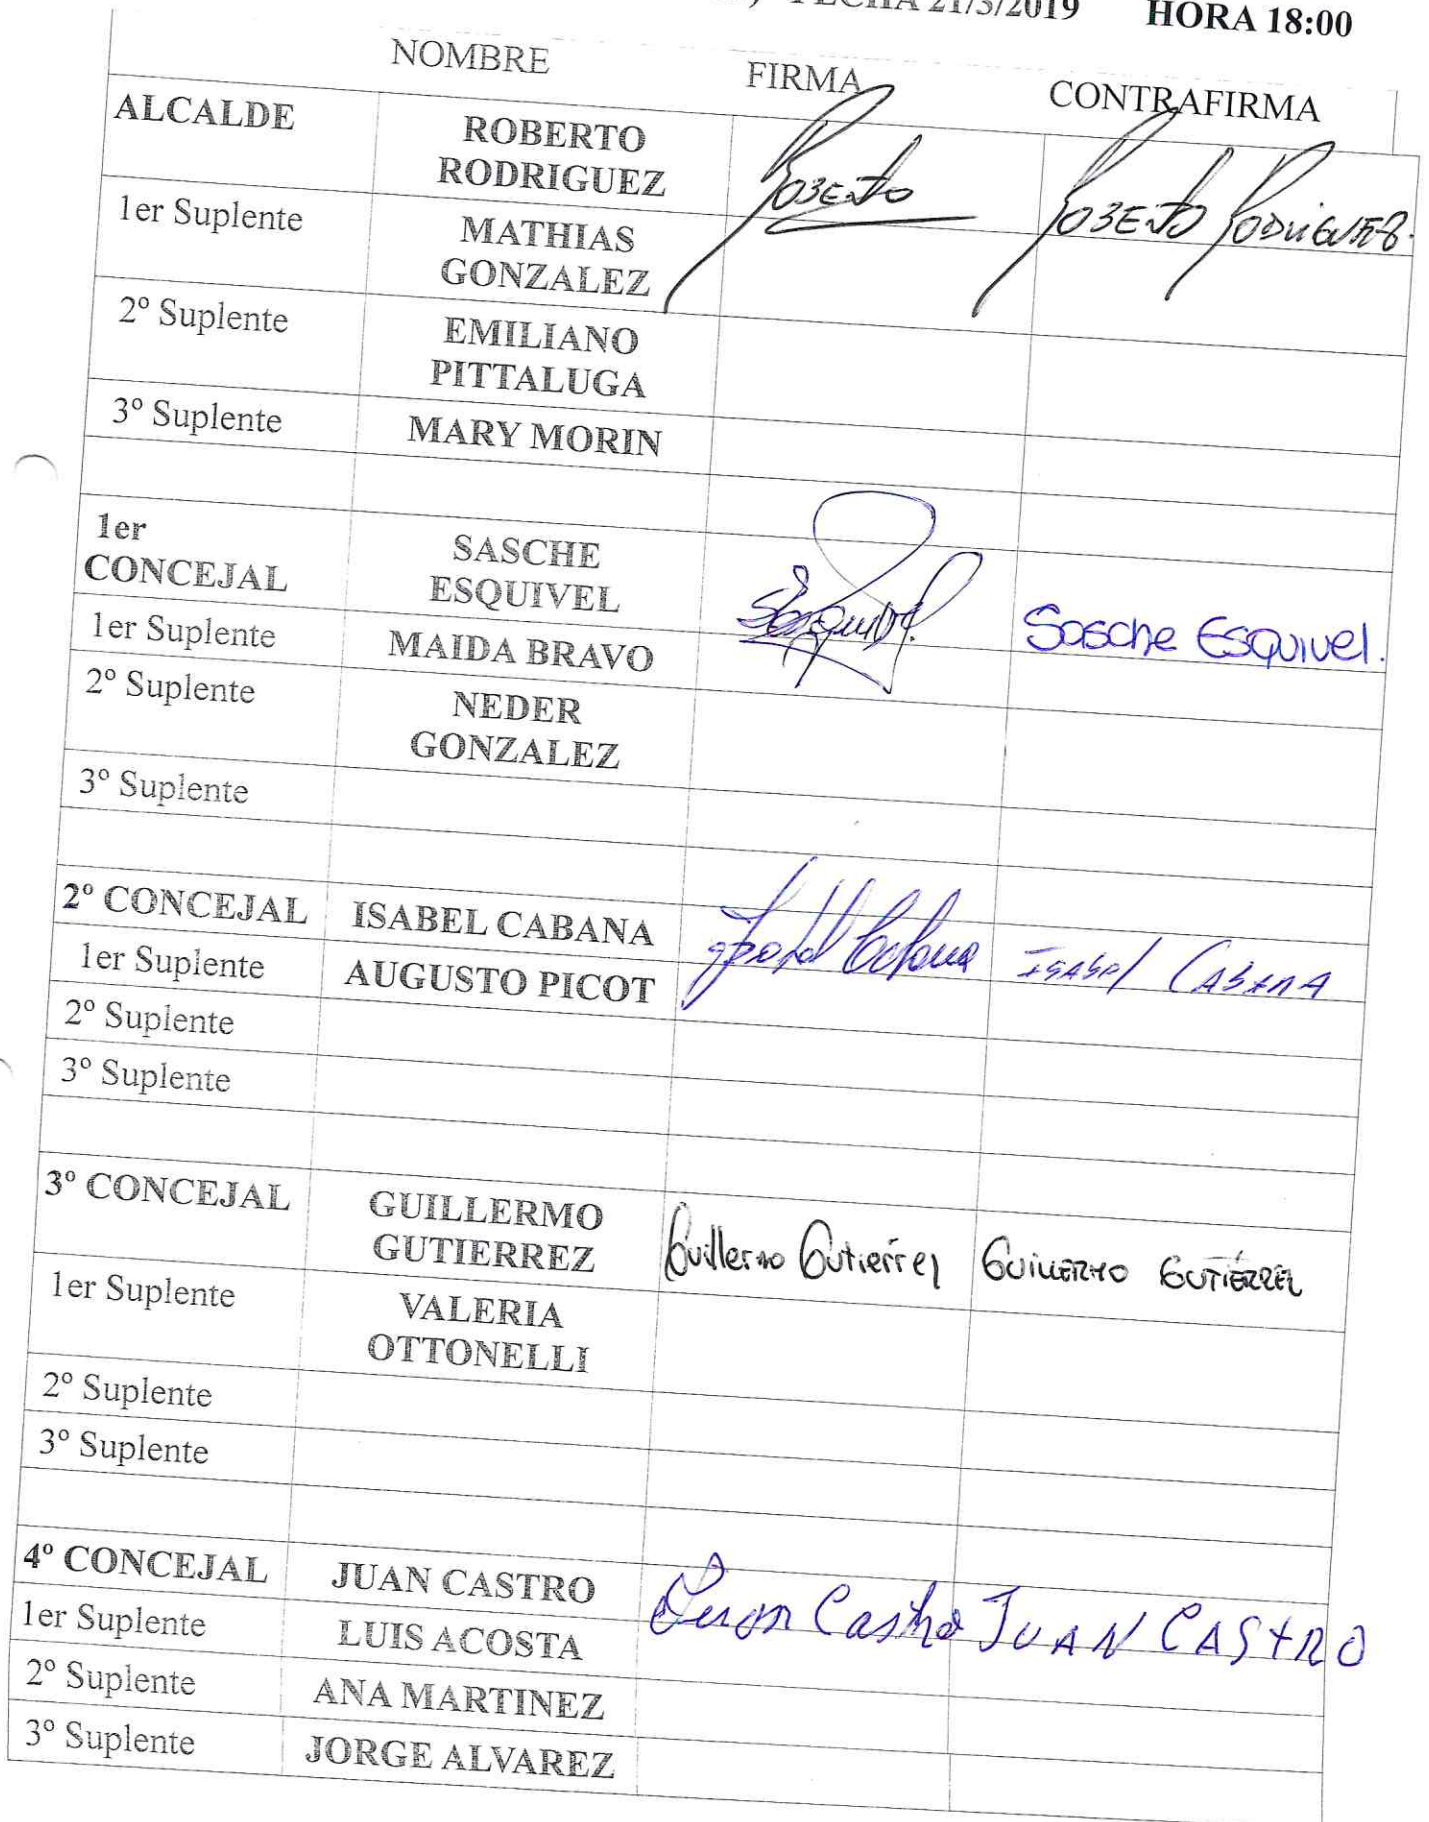 FECHA 21/3/2019 HORA 18:00
NOMBRE FIRMA CONTRAFIRMA
ALCALDE ROBERTO
RODRIGUEZ
Roberto Roberto Rodriguez.
1er Suplente MATHIAS
GONZALEZ
2º Suplente EMILIANO
PITTALUGA
3º Suplente MARY MORIN
1er
CONCEJAL SASCHE
ESQUIVEL
Sasche Esquivel.
1er Suplente MAIDA BRAVO
2º Suplente NEDER
GONZALEZ
3º Suplente
2º CONCEJAL ISABEL CABANA
Isabel Cabana ISABEL CABANA
1er Suplente AUGUSTO PICOT
2º Suplente
3º Suplente
3º CONCEJAL GUILLERMO
GUTIERREZ
Guillermo Gutierrez GUILLERMO GUTIÉRREZ
1er Suplente VALERIA
OTTONELLI
2º Suplente
3º Suplente
4º CONCEJAL JUAN CASTRO
Juan Castro JUAN CASTRO
1er Suplente LUIS ACOSTA
2º Suplente ANA MARTINEZ
3º Suplente JORGE ALVAREZ